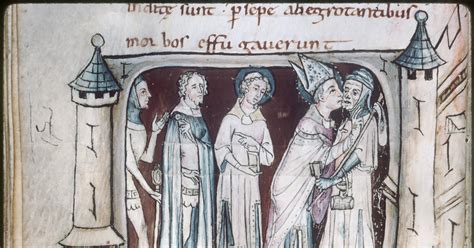 sunt · ꝑ sepe ab egrotantibus
mor bos effu gauerunt